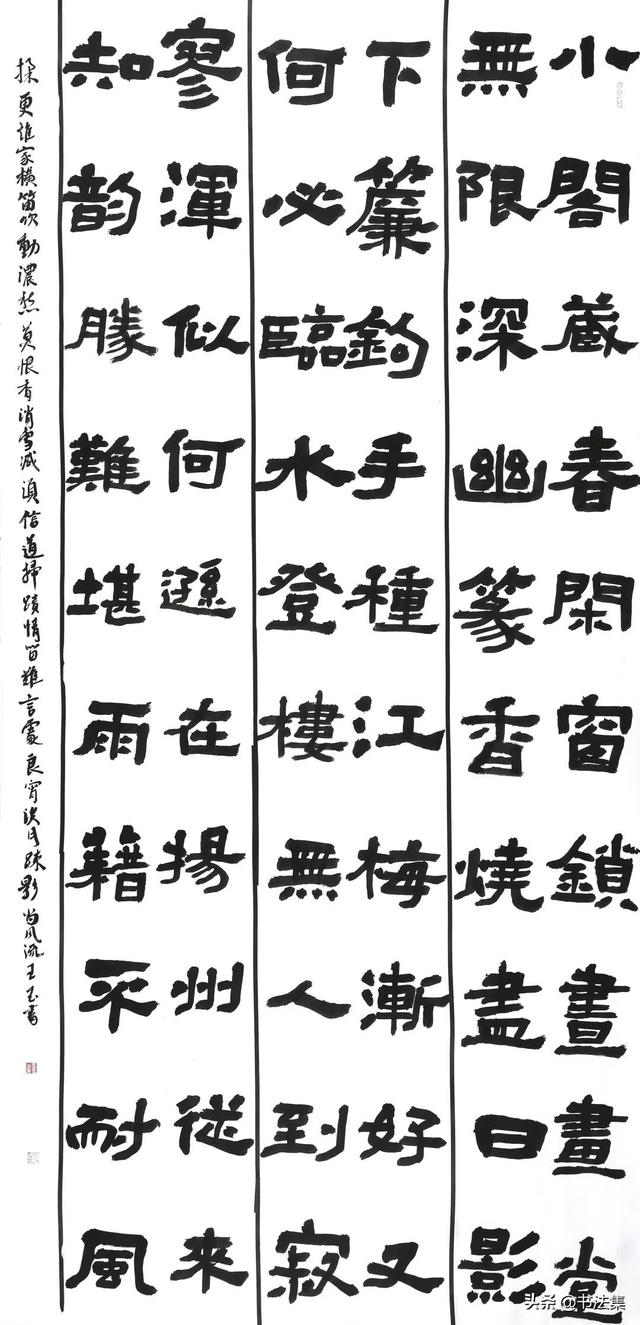 小閣藏春閑窗鎖晝畫堂
無限深幽篆香燒盡日影
下簾鈎手種江梅漸好又
何必臨水登樓無人到寂
寥渾似何遜在揚州從來
知韵勝難堪雨籍不耐風
揉更誰家橫笛吹動濃愁莫恨香消雪減須信道掃蹟情留難言處良宵淡月疎影尚風流王玉書
头条 @书法集